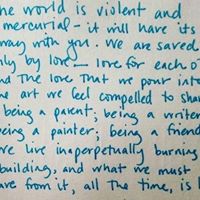 he world is violent and
mercurial - it will have its
way with you. We are saved
nly by love — love for each ot
nd the love that we pour into
e art we feel compelled to shar
being a parent; being a writer
eing a painter; being a friend
e live in a perpetually burning
building, and what we must
ave from it, all the time, is l